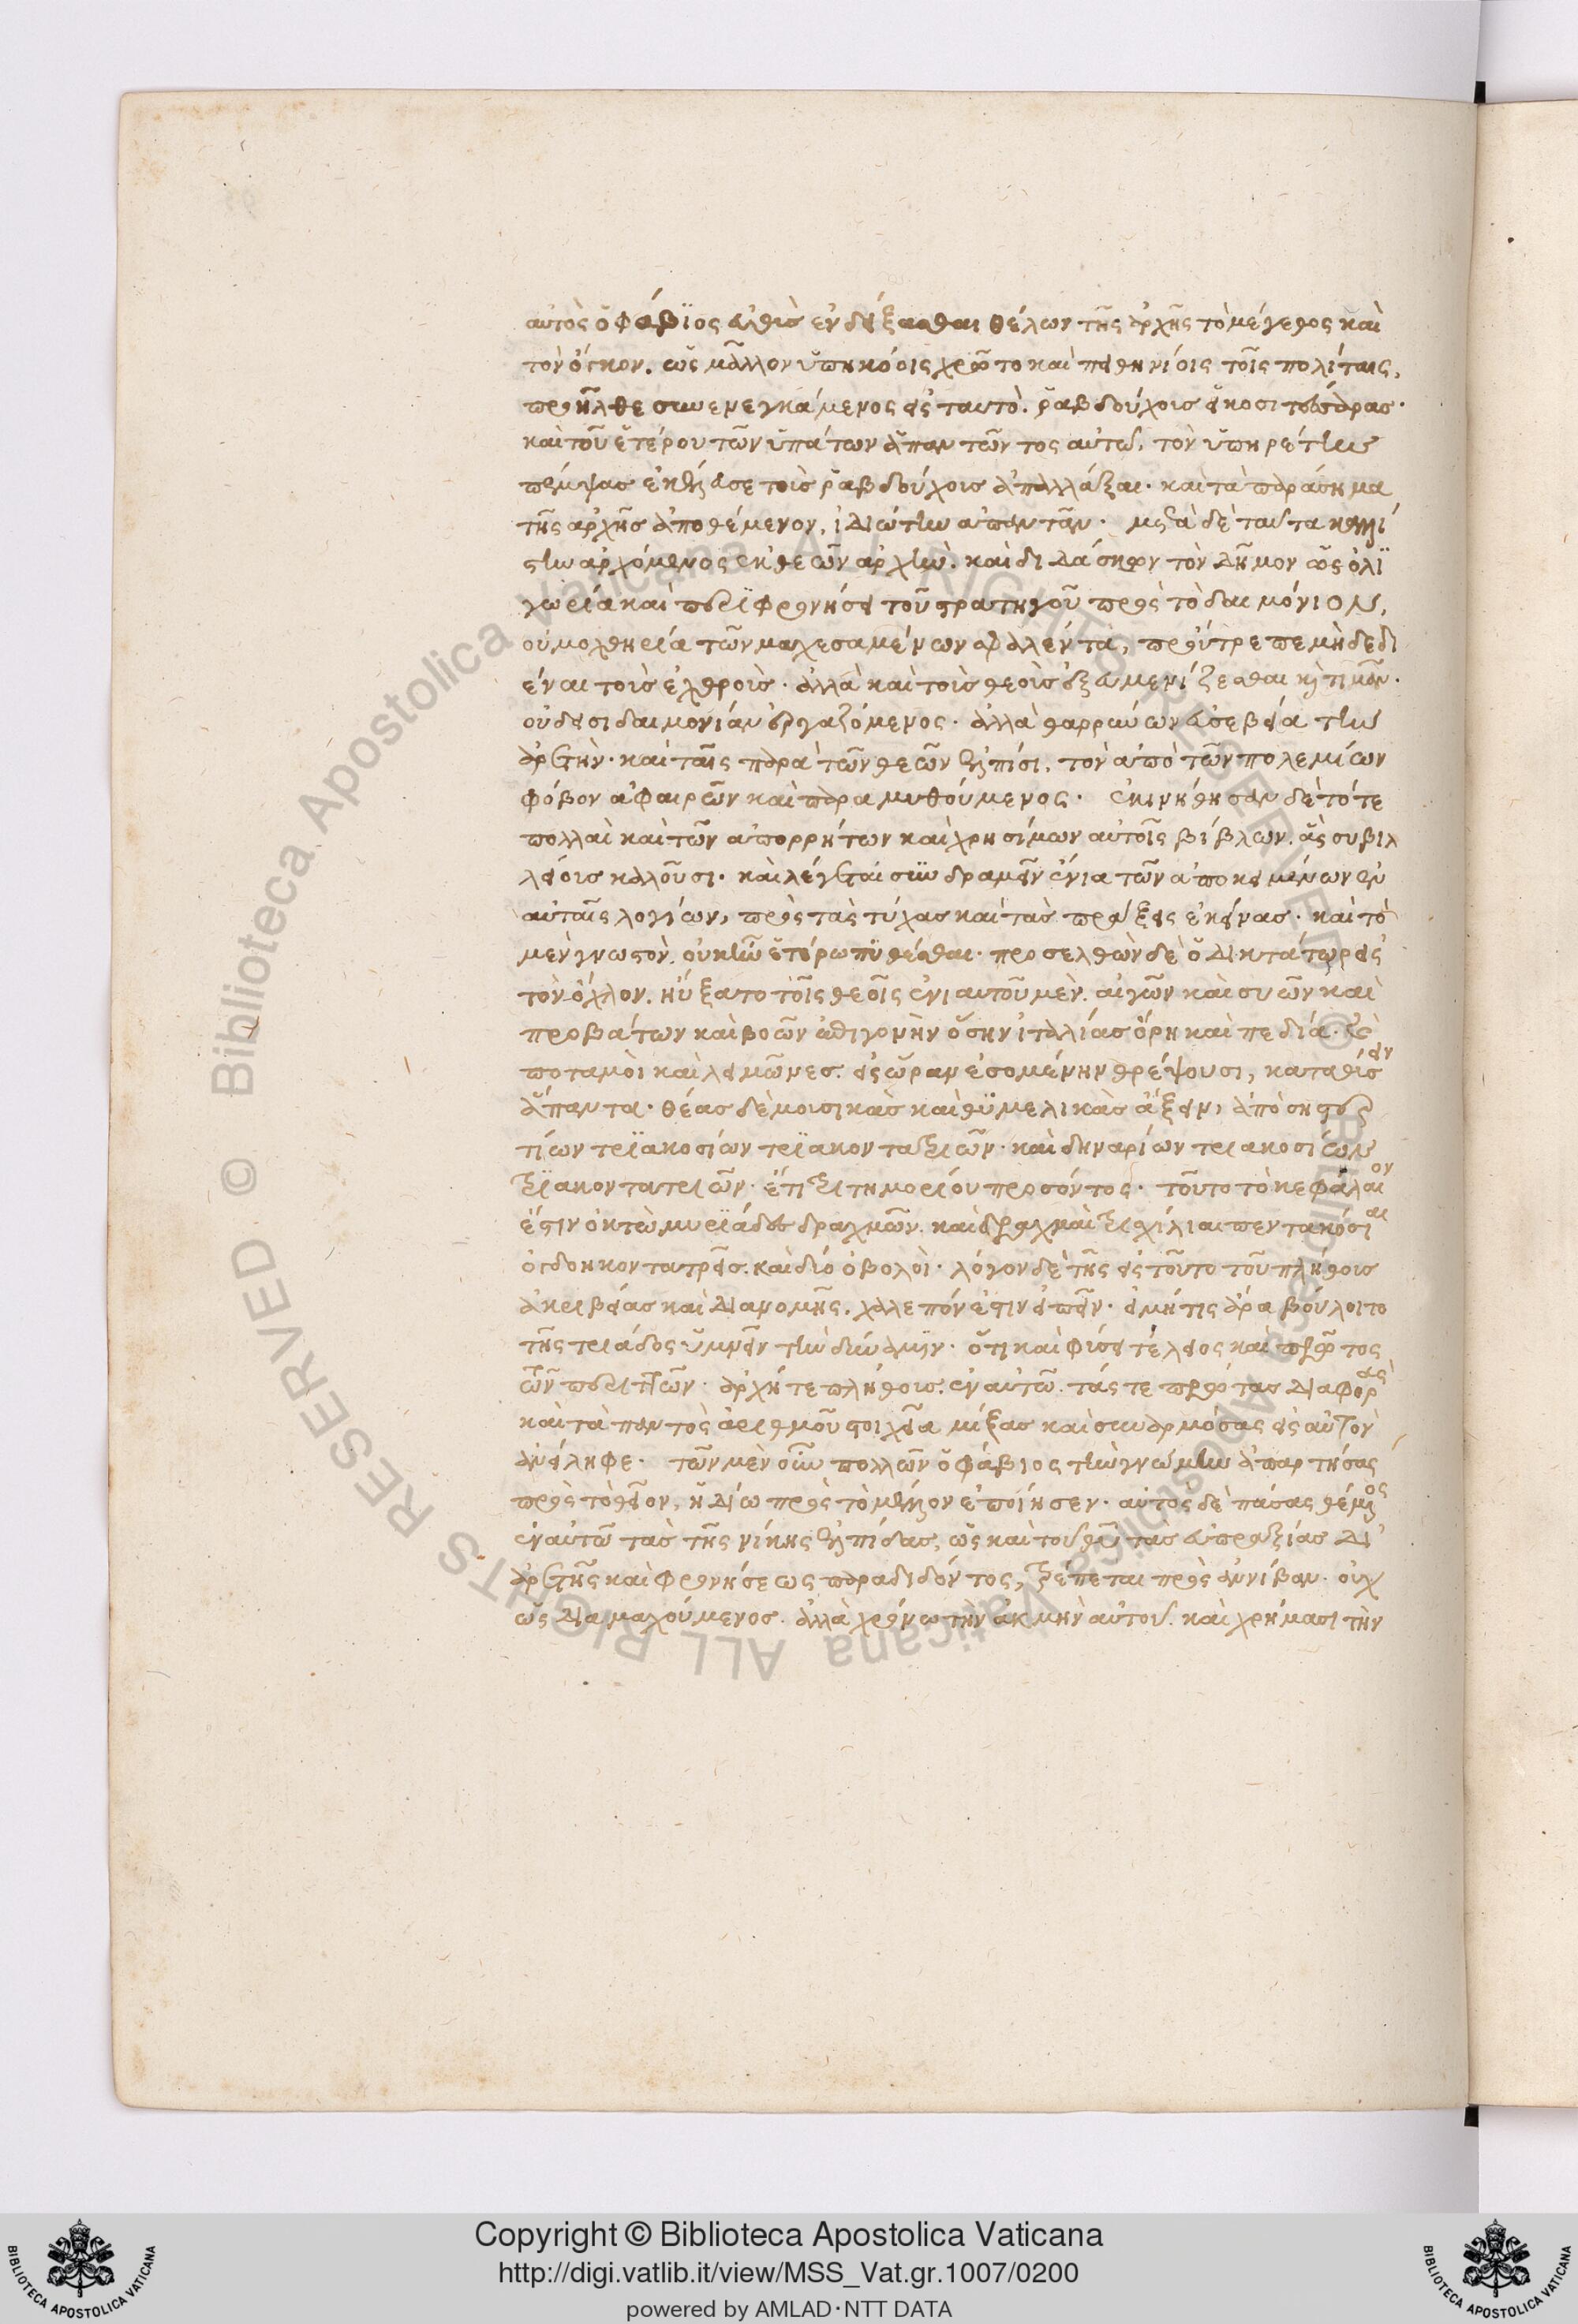 αὐτὸς ὁ Φάβϊος εὐθὺσ ἐνδείξασθαι θέλων τῆς ἀρχῆς τὸ μέγεθος καὶ
τὸν ὄγκον. ὡς μᾶλλον ὑπηκόοις χρῷτο καὶ πειθηνίοις τοῖς πολίταις,
προῆλθε συνενεγκάμενος εἰς ταυτὸ. ῥαβδούχους εἴκοσι τέσσαρας·
καὶ τοῦ ἑτέρου τῶν ὑπάτων ἀπαντῶντος αὐτῷ, τὸν ὑπηρέτην
πέμψας ἐκέλευσε τοὺς ῥαβδούχους ἀπαλλάξαι· καὶ τὰ παράσημα
τῆς ἀρχῆς ἀποθέμενον, ἰδιώτην ἀπαντᾶν· μετὰ δὲ ταῦτα καλλί
στην ἀρχόμενος ἐκ θεῶν ἀρχὴν. καὶ διδάσκων τὸν δῆμον ὡς ὀλϊ
γωρίᾳ καὶ περιφρονήσει τοῦ στρατηγοῦ πρὸς τὸ δαιμόνιον,
οὐ μοχθηρίᾳ τῶν μαχεσαμένων σφαλέντα, προύτρεπε μὴ δεδι
έναι τοὺς ἐχθροὺς· ἀλλὰ καὶ τοὺς θεοὺς ἐξευμενίζεσθαι κὶ τιμᾶν·
οὐ δεισιδαιμονίαν ἐργαζόμενος· ἀλλὰ θαρρύνων εὐσεβείᾳ τὴν
ἀρετὴν· καὶ ταῖς παρὰ τῶν θεῶν ἐλπίσι, τὸν ἀπὸ τῶν πολεμίων
φόβον ἀφαιρῶν καὶ παραμυθούμενος· ἐκινήθησαν δὲ τότε
πολλαὶ καὶ τῶν ἀπορρήτων καὶ χρησίμων αὐτοῖς βίβλων. ἃς συβιλ
λείους καλοῦσι· καὶ λέγεται συνδραμεῖν ἔνια τῶν ἀποκειμένων ἐν
αὐταῖς λογίων, πρὸς τὰς τύχας καὶ τὰς πράξεις ἐκείνας· καὶ τὸ
μὲν γνωσθὲν οὐκ ἦν ἑτέρῳ πυθέσθαι· προσελθὼν δὲ ὁ δικτάτωρ εἰς
τὸν ὄχλον. ηὔξατο τοῖς θεοῖς ἐνιαυτοῦ μὲν. αἰγῶν καὶ συῶν καὶ
προβάτων καὶ βοῶν ἐπιγονὴν ὅσην ἰταλίας ὄρη καὶ πεδία· καὶ
ποταμοὶ καὶ λειμῶνες. εἰς ὥραν ἐσομένην θρέψουσι, καταθύσειν
ἅπαντα· θέας δὲ μουσικὰς καὶ θυμελικὰς ἄξειν, ἀπὸ σηστερ
τίων τρϊακοσίων τρϊακοντατριῶν· καὶ δηναρίων τριακοσίων
τριακοντατριῶν· ἔτι τριτημορίου προσόντος· τοῦτο τὸ κεφάλαιον
ἔστιν ὀκτὼ μυρϊάδες δραχμῶν. καὶ δραχμαὶ τρισχίλιαι πεντακόσιαι
ὀγδοηκοντατρεῖς. καὶ δύο ὀβολοὶ· λόγον δὲ τῆς εἰς τοῦτο τοῦ πλήθους
ἀκριβείας καὶ διανομῆς. χαλεπόν ἐστιν εἰπεῖν· εἰ μή τις ἄρα βούλοιτο
τῆς τριάδος ὑμνεῖν τὴν δύναμϊν· ὅτι καὶ φύσει τέλειος καὶ πρῶτος
τῶν περιττῶν· ἀρχή τε πλήθους. ἐν αὑτῷ. τάς τε πρώτας διαφορὰς
καὶ τὰ παντὸς ἀριθμοῦ στοιχεῖα μίξας καὶ συναρμόσας εἰς αὐτὸν
ἀνείληφε· τῶν μὲν οὖν πολλῶν ὁ φάβιος τὴν γνώμην ἀπαρτήσας
πρὸς τὸ θεῖον, ἡδίω πρὸς τὸ μέλλον ἐποίησεν· αὐτὸς δὲ πάσας θέμενος
ἐν αὑτῷ τὰς τῆς νίκης ἐλπίδας, ὡς καὶ τοῦ θεοῦ τὰς εὐπραξίας δι’
ἀρετῆς καὶ φρονήσεως παραδιδόντος, τρέπεται πρὸς ἀννίβαν· οὐχ
ὡς διαμαχούμενος. ἀλλὰ χρόνῳ τὴν ἀκμὴν αὐτοῦ. καὶ χρήμασι τὴν
Copyright © Biblioteca Apostolica Vaticana
http://digi.vatlib.it/view/MSS_Vat.gr.1007/0200
powered by AMLAD·NTT DATA